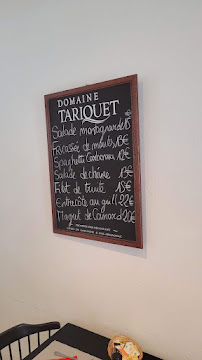 DOMAINE
TARIQUET
Salade montagnarde 15
Fricassée de moules 13€
Spaghetti Carbonara 12€
Salade de chèvre 13€
Filet de truite 18€
Entrecôte au grill 22€
Magret de Canard 20€